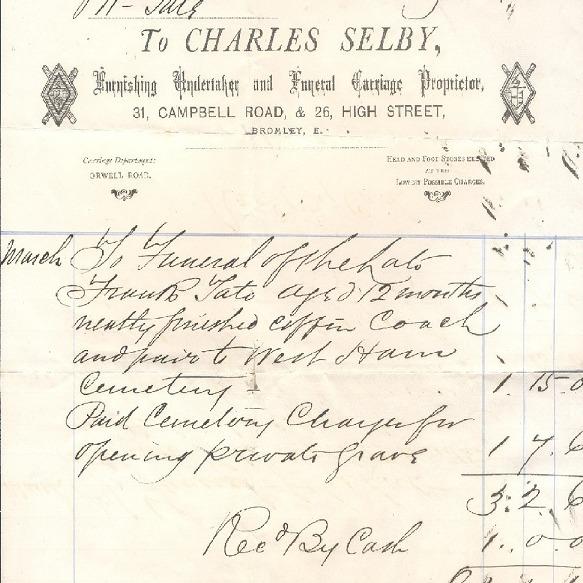 To CHARLES SELBY,
Furnishing Undertaker and Funeral Carriage Proprietor,
31, CAMPBELL ROAD, & 26, HIGH STREET,
BROMLEY, E.
Carriage Department:
ORWELL ROAD.
HEAD AND FOOT STONES ERECTED
AT THE
LOWEST POSSIBLE CHARGES.
March To Funeral of the late
Frank Tato aged 12 months
neatly finished coffin Coach
and pair to West Ham
Cemetery 1. 15. 0
Paid Cemetery Charges for
opening private grave 1 7. 6
3. 2. 6
Rec'd By Cash 1. 0. 0